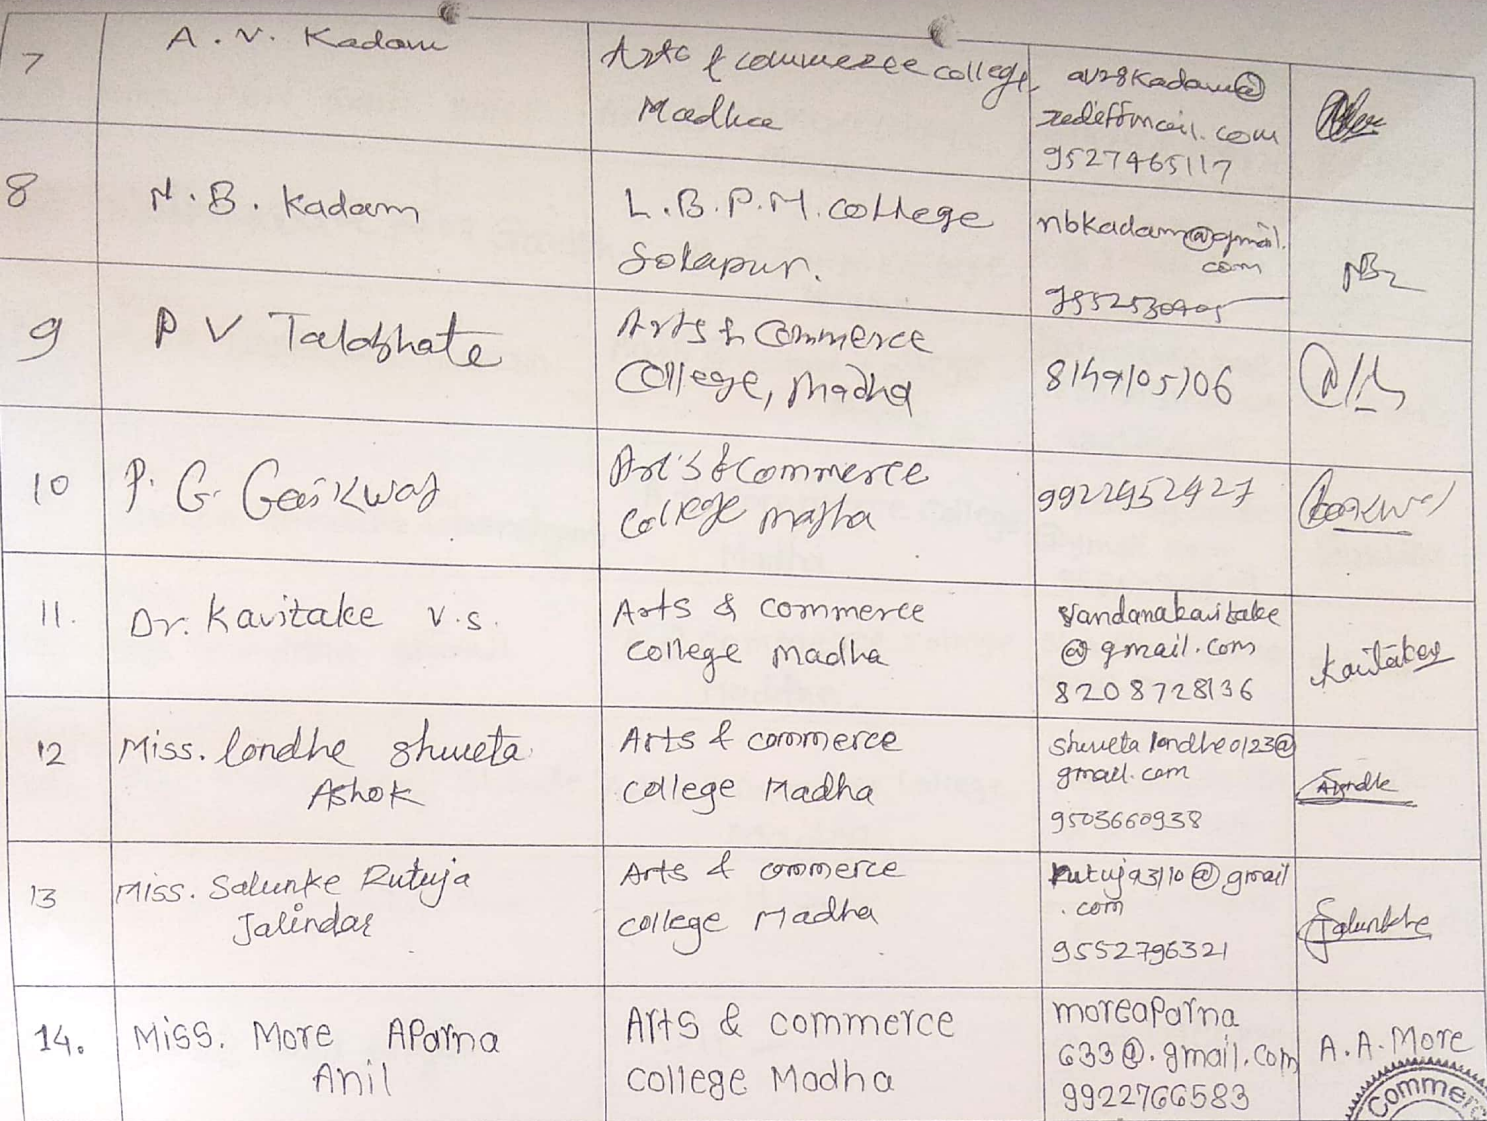 7
A. V. Kadam
Arts & commerce college,
Madha
av28kadam@
rediffmail.com
9527465117
8
N. B. Kadam
L.B.P.M. college
Solapur.
nbkadam@gmail.
com
9
P V Talabhate
Arts & Commerce
College, Madha
8149105106
10
P. G. Gaikwad
Art's & Commerce
College Madha
9922952427
11.
Dr. Kavitake V.S.
Arts & commerce
college Madha
vandanakavitake
@gmail.com
8208728136
Kavitake
12
Miss. londhe shweta
Ashok
Arts & commerce
college Madha
shwetalondhe0123@
gmail.com
9503660938
13
Miss. Salunke Rutuja
Jalindar
Arts & commerce
college Madha
rutuja3110@gmail
.com
9552796321
Salunkhe
14.
Miss. More Aparna
Anil
Arts & commerce
college Madha
moreaparna
633@.gmail.com
9922766583
A.A. More
Commerc